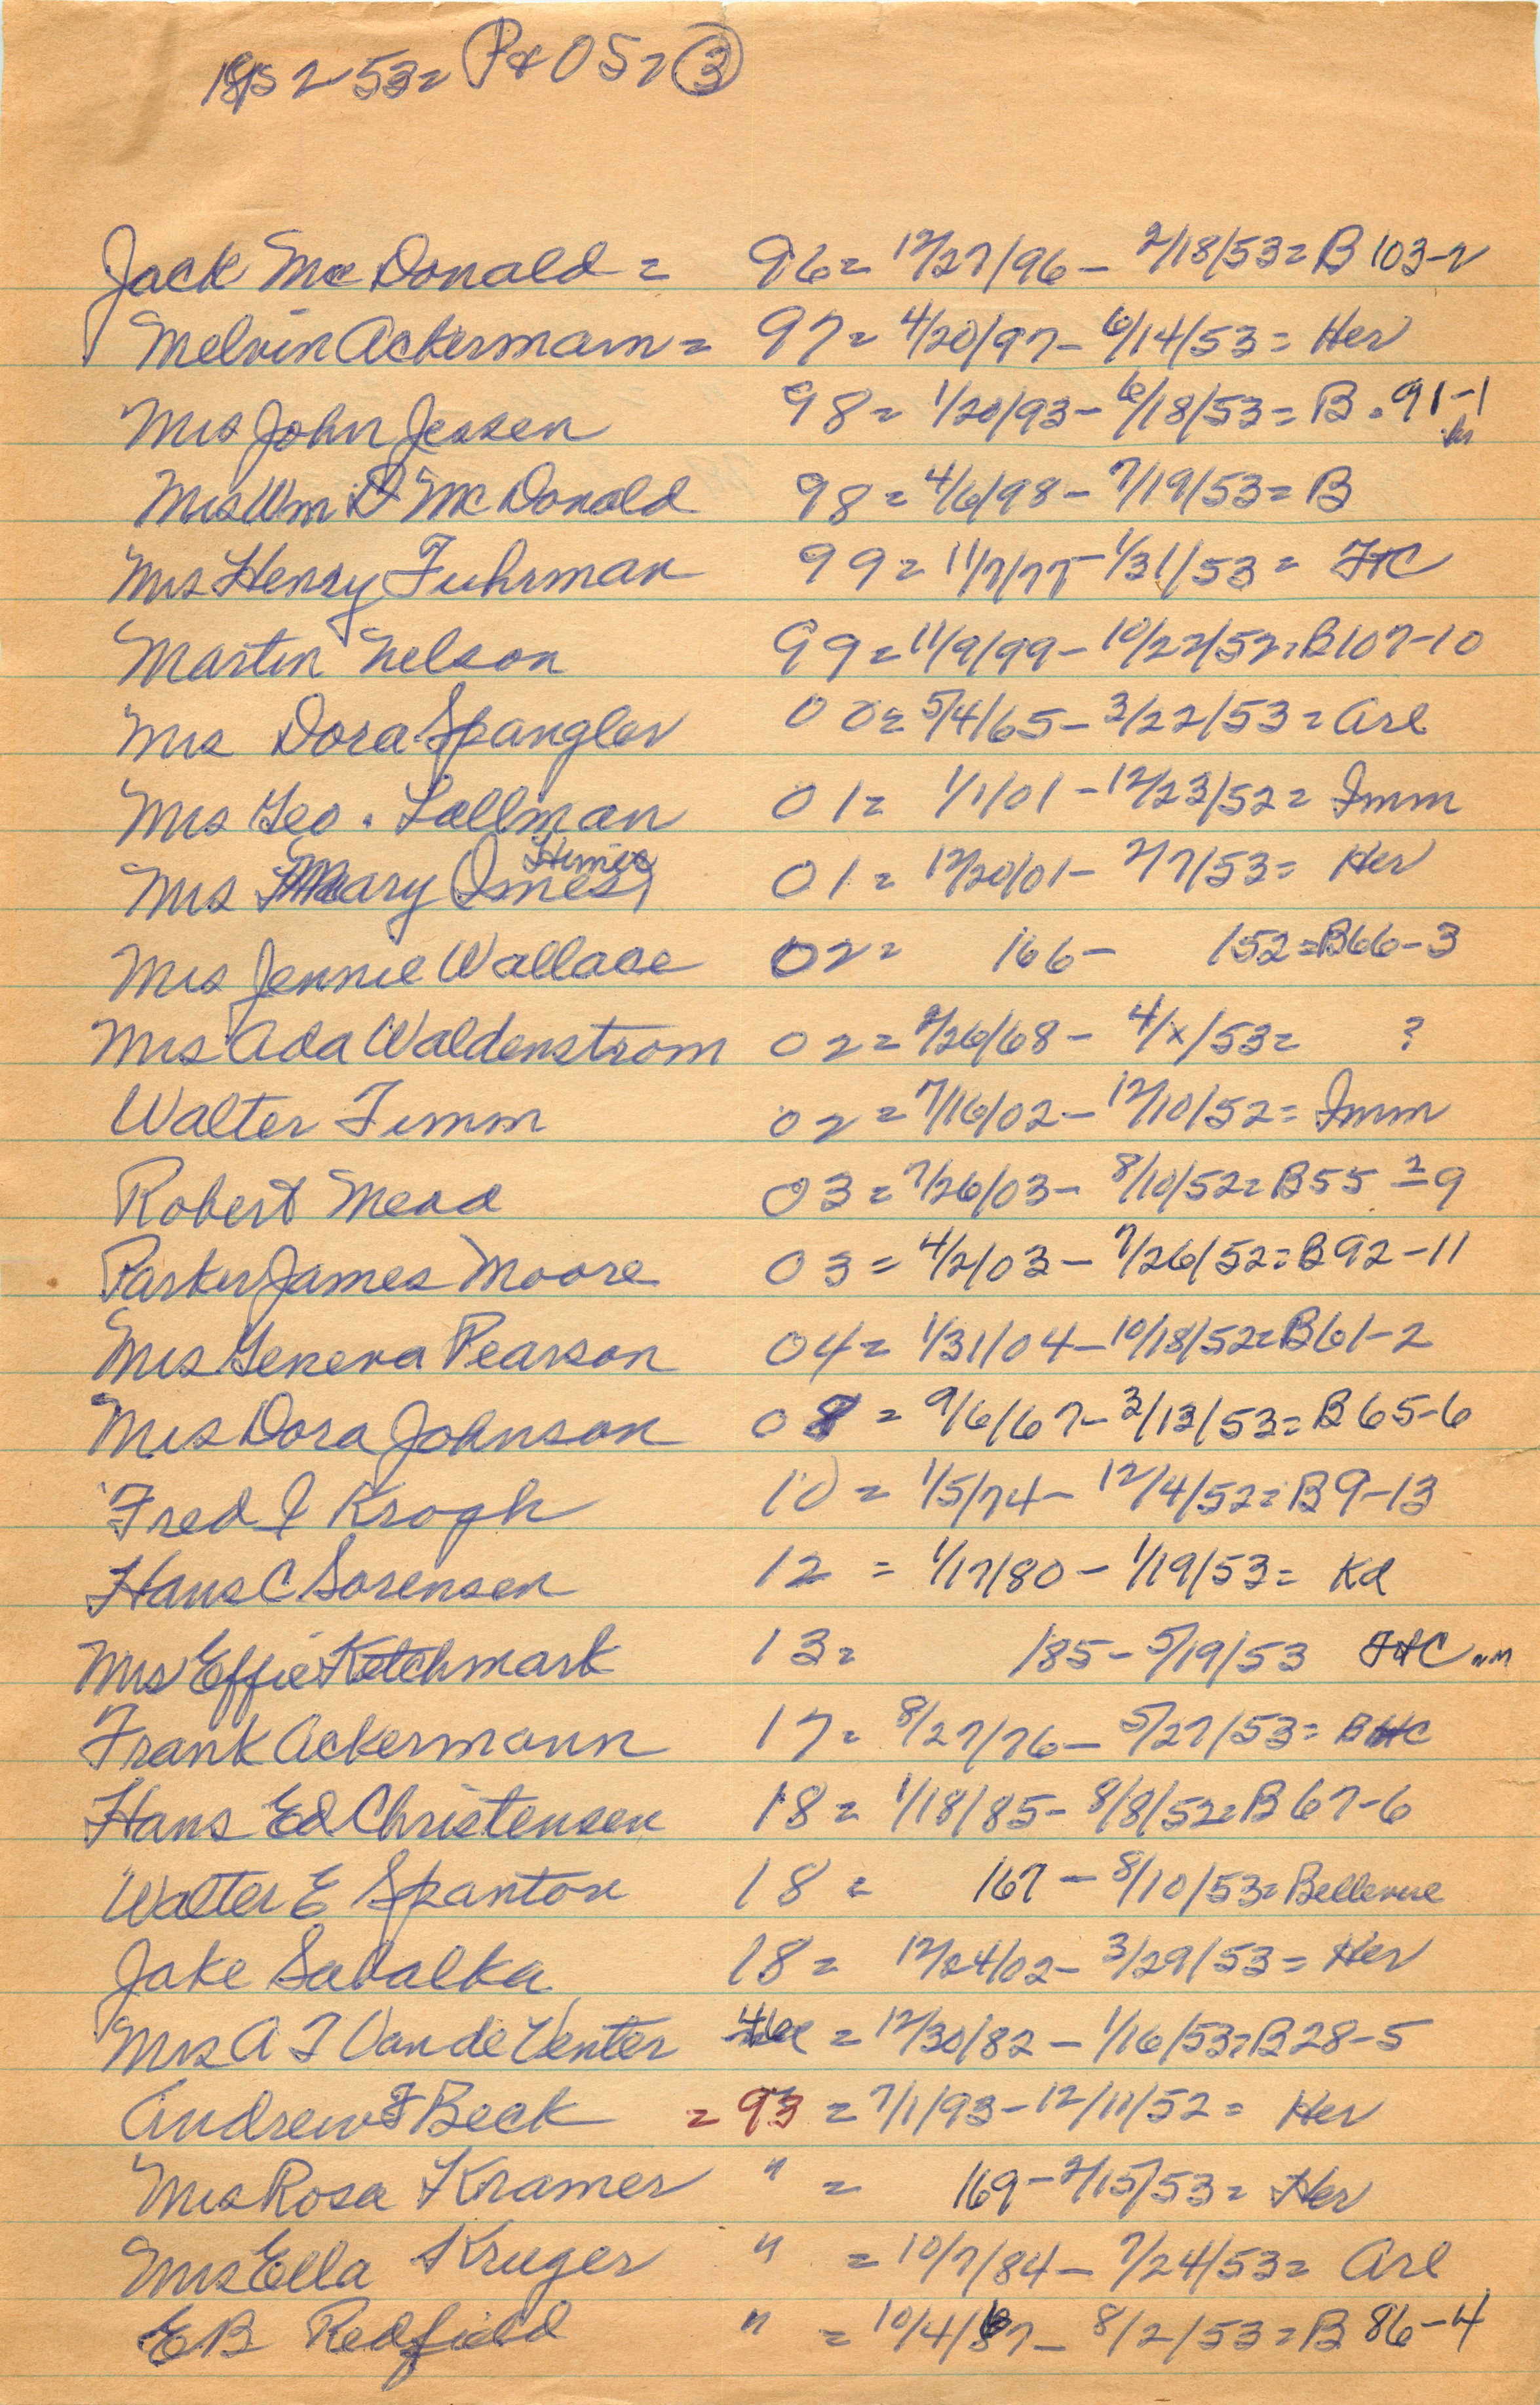 1952-53= P&OS= 3
Jack McDonald = 96= 12/27/96 - 2/18/53= B 103-2
Melvin Ackermann = 97= 4/20/97- 6/14/53= Her
Mrs John Jessen 98= 1/20/93- 6/18/53= B. 91-1
Mrs Wm D McDonald 98= 4/6/98- 7/19/53= B
Mrs Henry Fuhrman 99= 11/7/77- 1/31/53= FHC
Martin Nelson 99= 11/9/99- 10/22/52= B107-10
Mrs Dora Spangler 00= 5/4/65- 3/22/53= Arl
Mrs Geo. Lallman 01= 1/1/01- 12/23/52= Imm
Mrs Mary Imes 01= 12/20/01- 2/7/53= Her
Mrs Jennie Wallace 02= /66- /52=B66-3
Mrs Ada Waldenstrom 02= 2/26/68- 4/x/53= ?
Walter Timm 02= 7/16/02- 12/10/52= Imm
Robert Mead 03= 7/26/03- 8/10/52= B55 2-9
Parker James Moore 03= 4/2/03- 7/26/52= B92-11
Mrs Geneva Pearson 04= 1/31/04- 10/18/52= B61-2
Mrs Dora Johnson 08 = 9/6/67- 3/13/53= B 65-6
Fred I Krogh 10 = 1/5/74- 12/4/52= B9-13
Hans C Sorensen 12 = 1/17/80- 1/19/53= Kd
Mrs Effie Ketchmark 13= /85- 5/19/53 FHC
Frank Ackermann 17= 8/27/76- 5/27/53= BHC
Hans Ed Christensen 18= 1/18/85- 8/8/52= B 67-6
Walter E Spanton 18= /67- 8/10/53= Bellevue
Jake Sabalka 18= 12/24/02- 3/29/53= Her
Mrs A T Van de Venter = 12/30/82- 1/16/53= B28-5
Andrew F Beck = 93 = 7/1/93- 12/11/52= Her
Mrs Rosa Kramer " = /69- 2/15/53= Her
Mrs Ella Kruger " = 10/7/84- 7/24/53= Arl
EB Redfield " = 10/4/67- 8/2/53= B 86-4